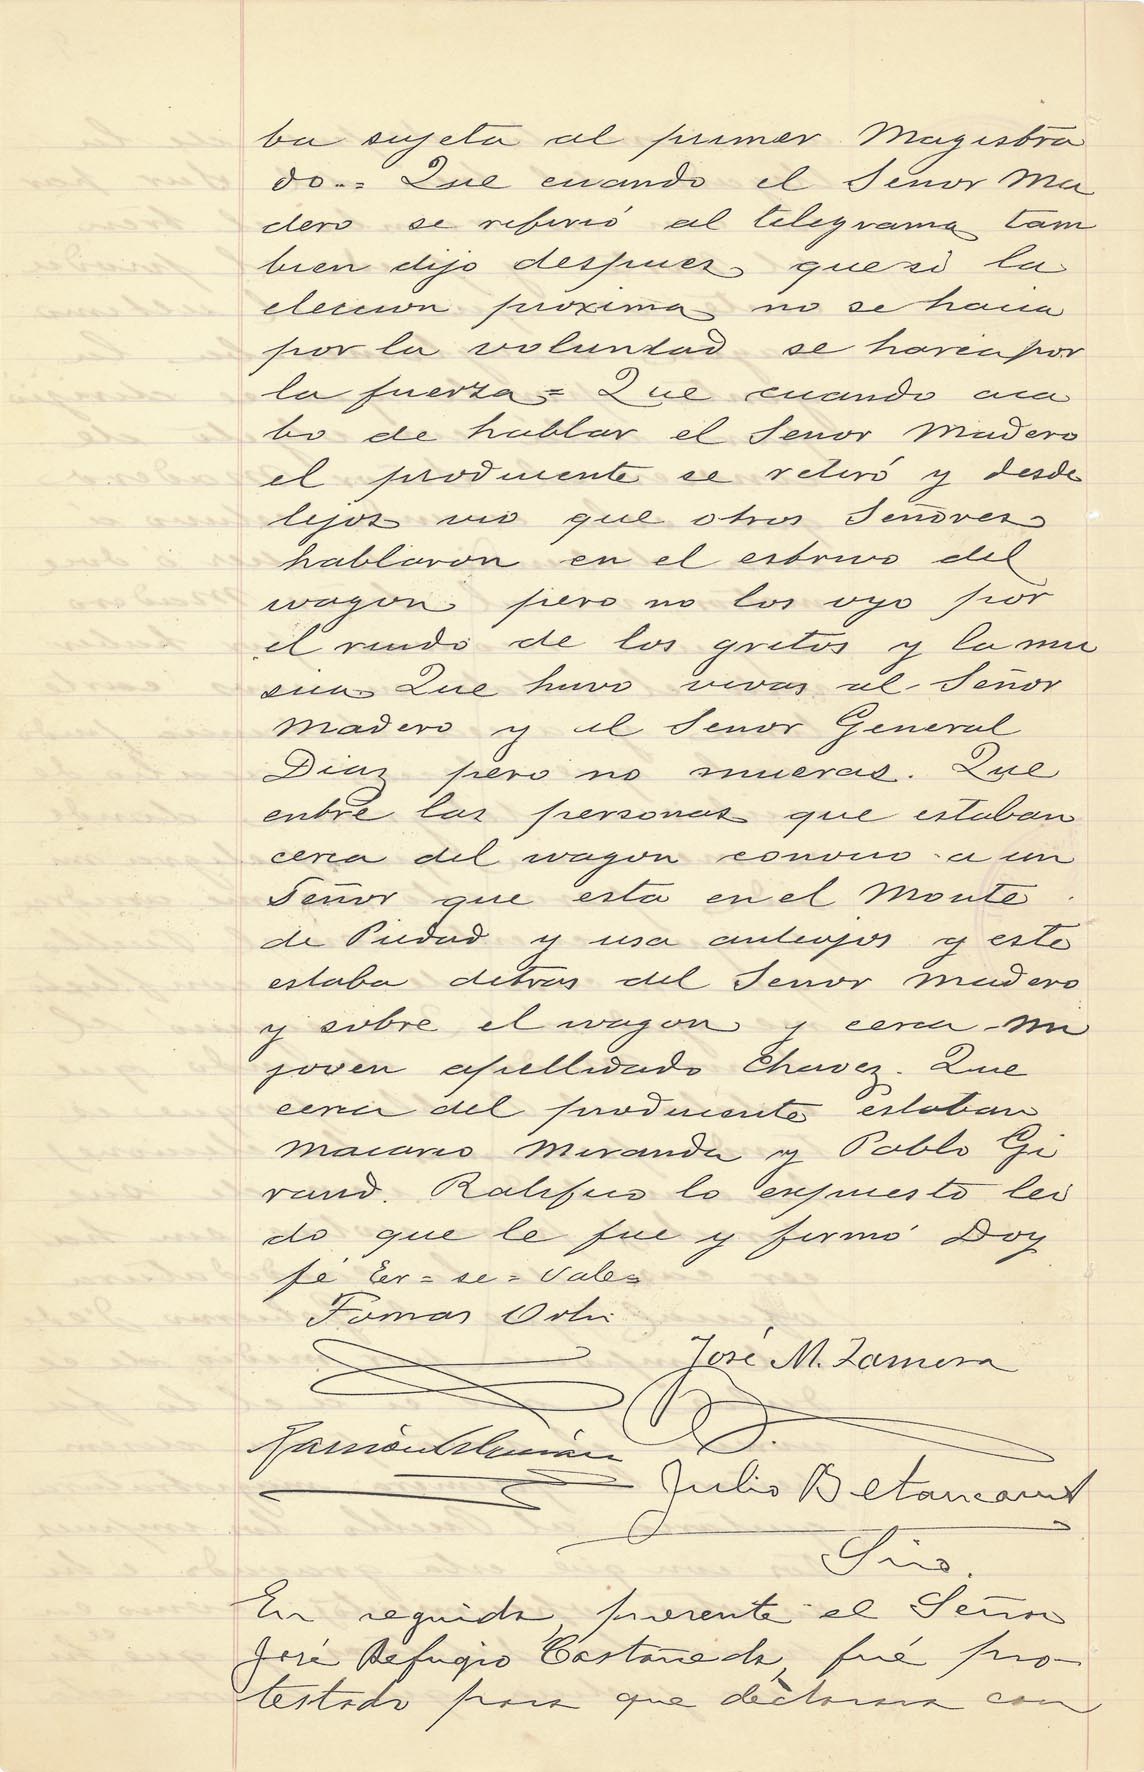 ba sujeta al primer Magistra
do.= Que cuando el Senor Ma
dero se refirió al telegrama tam
bien dijo despues que si la
eleccion proxima no se hacia
por la voluntad se haria por
la fuerza = Que cuando aca
bo de hablar el Senor Madero
el producente se retiró y desde
lejos vio que otros Señores
hablaron en el estrivo del
wagon pero no los oyo por
el ruido de los gritos y la mu
sica Que huvo vivas al Señor
Madero y al Senor General
Diaz pero no mueras. Que
entre las personas que estaban
cerca del wagon conocio a un
Señor que esta en el Monte
de Piedad y usa anteojos y este
estaba detras del Senor Madero
y sobre el wagon y cerca un
joven apellidado Chavez. Que
cerca del producente estaban
Macario Miranda y Pablo Gi
raud. Ratifico lo expuesto lei
do que le fue y firmó Doy
fé Er = se = Vale =
Tomas Ortiz
José M. Zamora
Julio Betancourt
Srio.
En seguida, presente el Señor
José Refugio Castañeda, fué pro-
testado para que declarara con